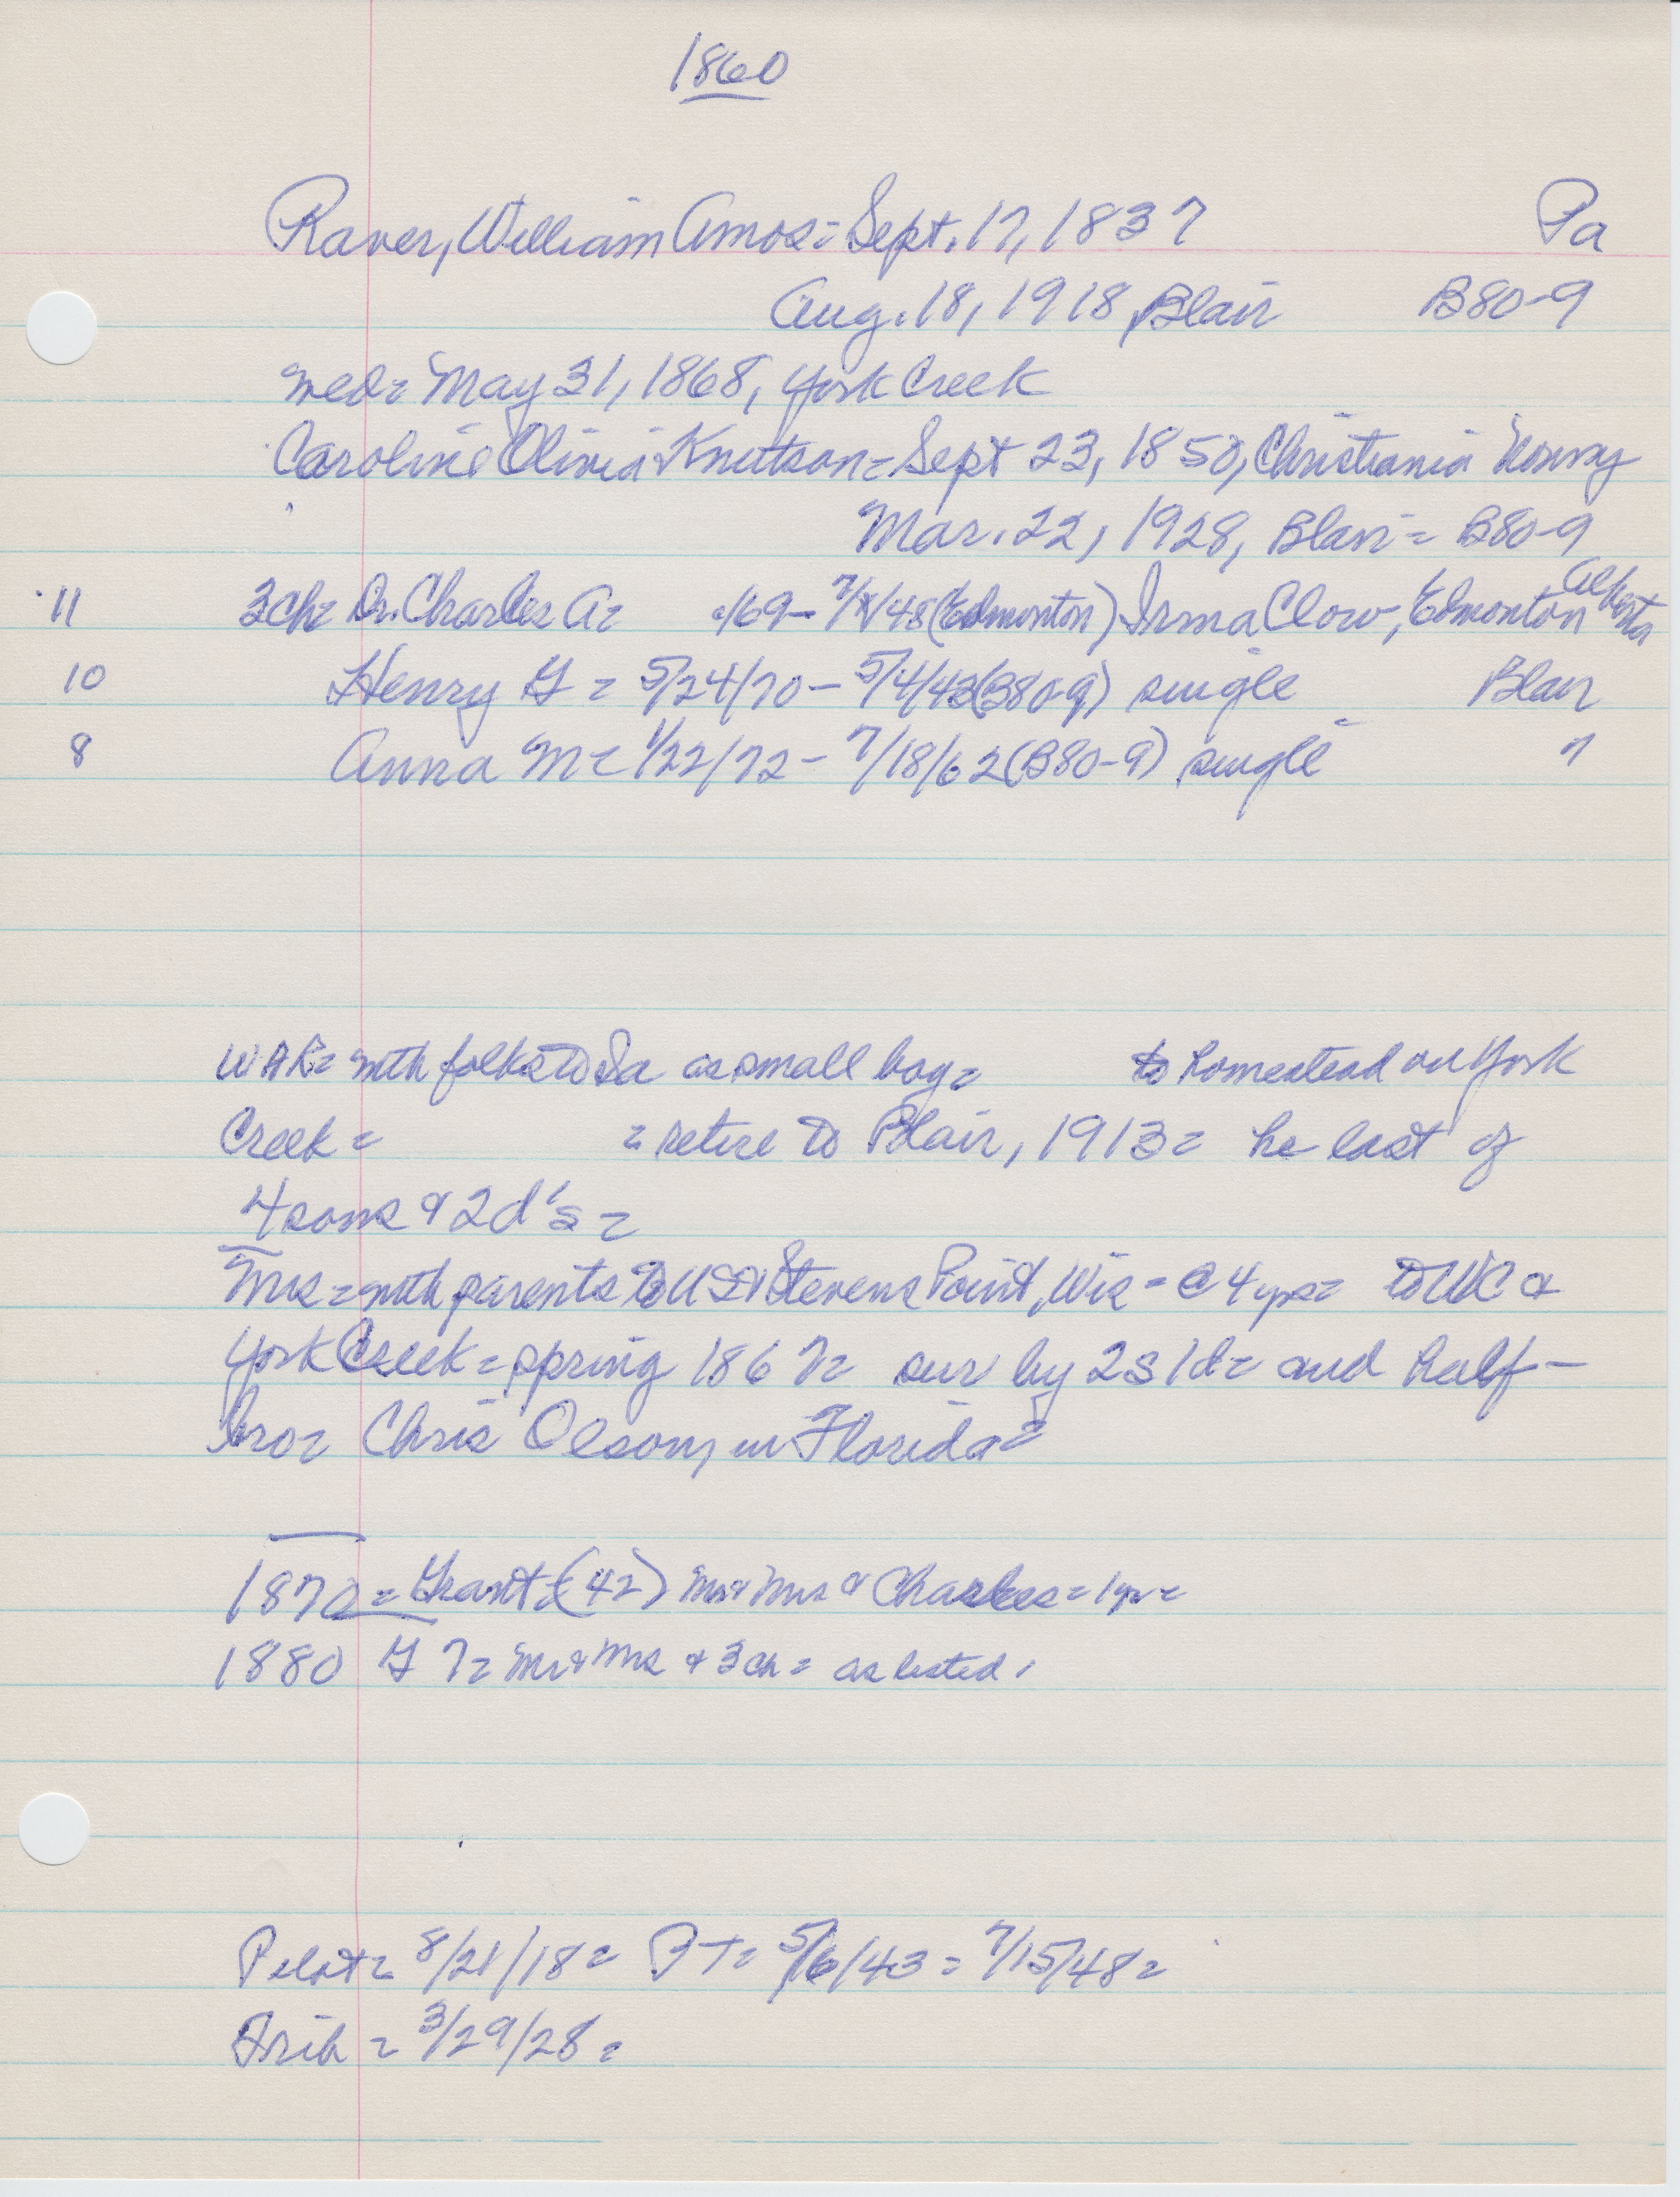 1860
Raver, William Amos = Sept. 17, 1837 Pa
Aug. 18, 1918, Blair B80-9
wed = May 31, 1868, York Creek
Caroline Olivia Knutson = Sept 23, 1850, Christiania Norway
Mar. 22, 1928, Blair = B80-9
11 3ch = Dr. Charles A = /69 - 7/ /48 (Edmonton) Irma Clow, Edmonton Alberta
10 Henry G = 5/24/70 - 5/4/43 (B80-9) single Blair
8 Anna M = 1/22/72 - 7/18/62 (B80-9) single "
WAR = with folks to as small boy = to homestead on York
Creek = = retire to Blair, 1913 = he last of
4 sons & 2 d's =
Mrs = with parents to US & Stevens Point, Wis - @ 4 yrs = to &
York Creek = spring 1867 = sur by 2s 1d = and half-
bro = Chris Olson, in Florida =
1870 = Grant = (42) Mr & Mrs & Charles = 1 yr =
1880 G 7 = Mr & Mrs & 3 ch = as listed.
= 8/21/18 = BT = 5/6/43 = 7/15/48 =
= 3/29/28 =